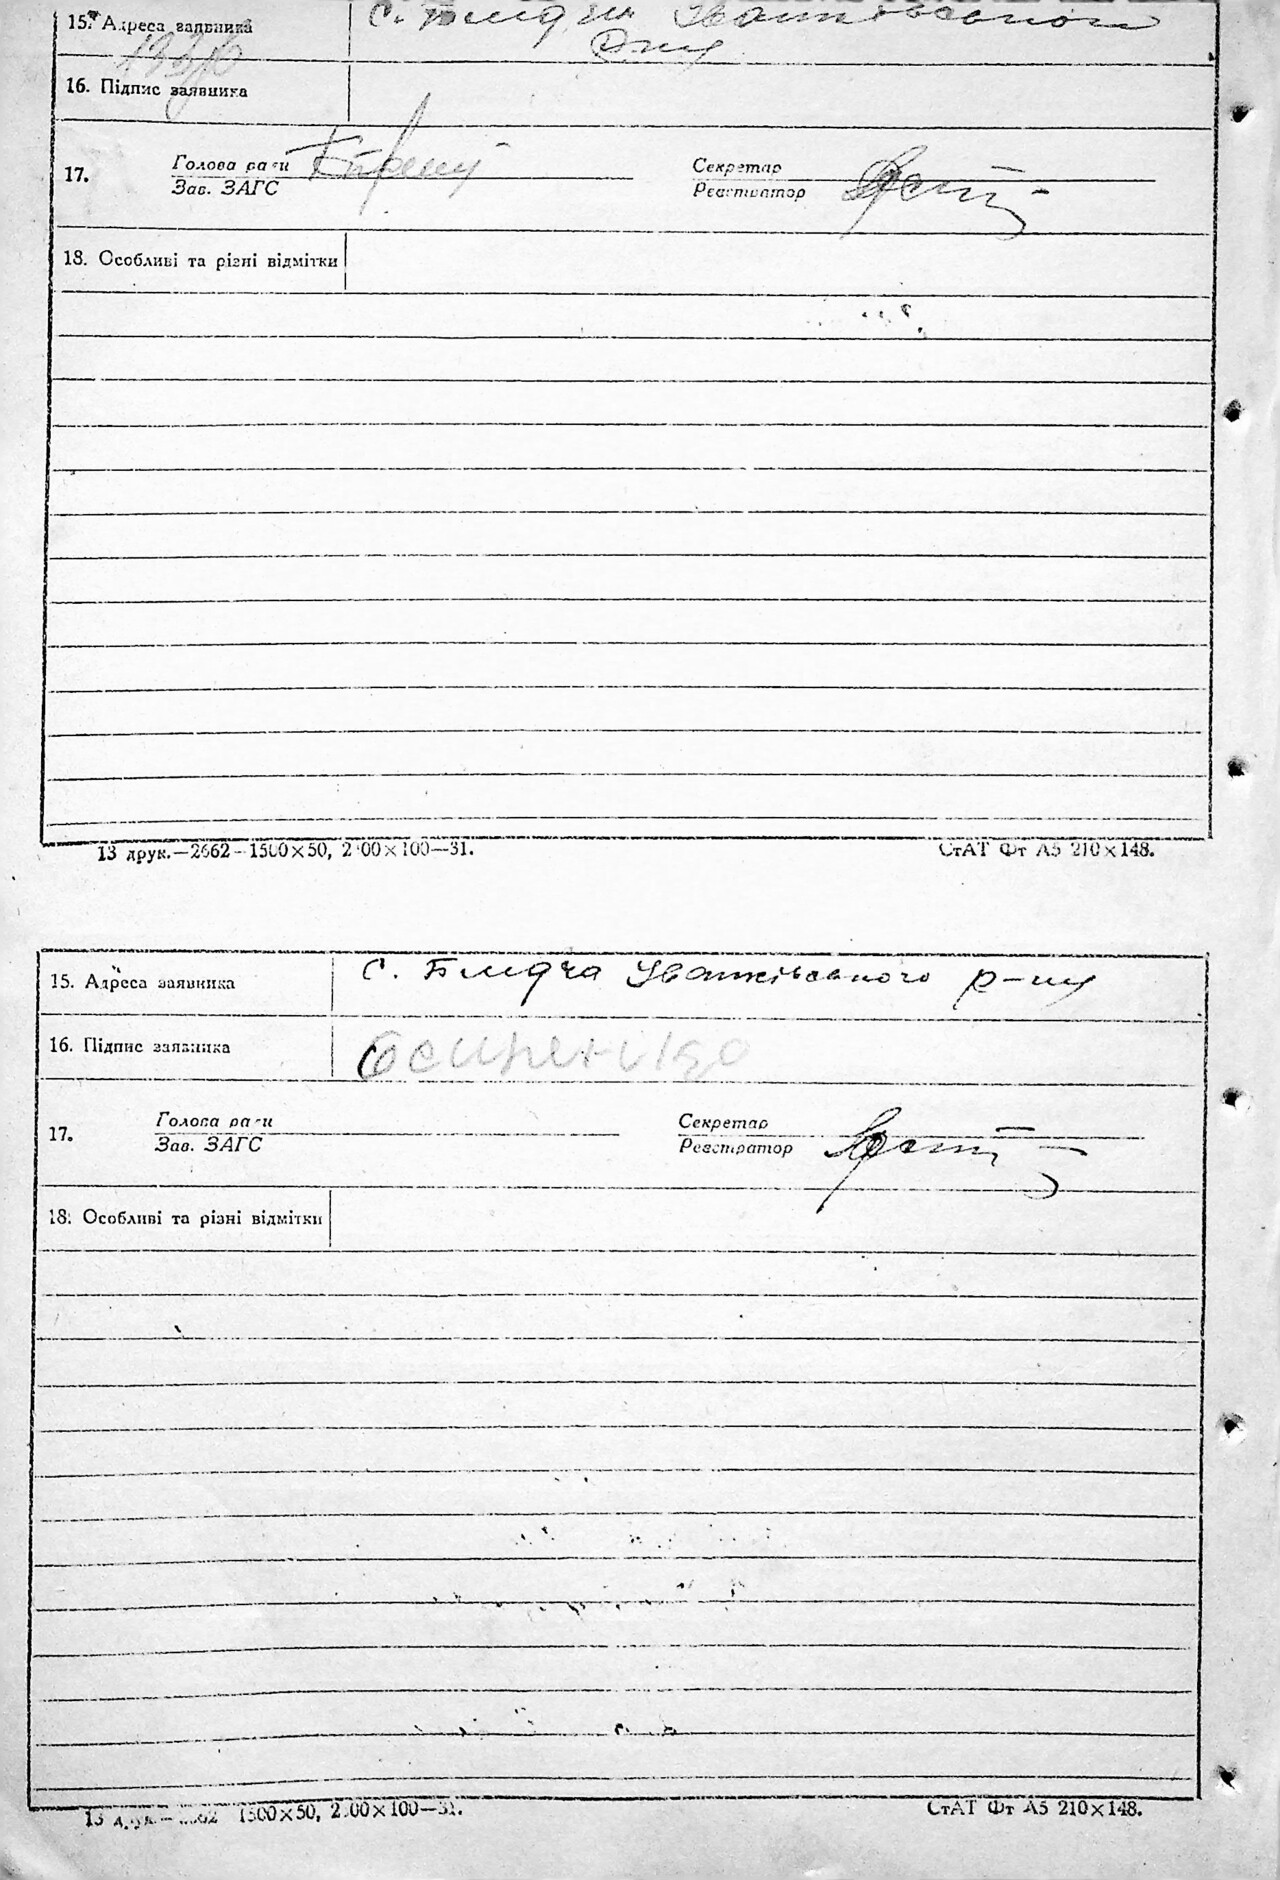 15. Адреса заявника
с. Блидча Іванківського
р-ну
16. Підпис заявника
17. Голова ради Секретар
Зав. ЗАГС Реєстратор
18. Особливі та різні відмітки
13 друк.—2662—1500×50, 2 00×100—31. СтАТ Фт А5 210×148.
15. Адреса заявника с. Блидча Іванківського р-ну
16. Підпис заявника
17. Голова ради Секретар
Зав. ЗАГС Реєстратор
18. Особливі та різні відмітки
13 друк.— 1500×50, 2 00×100—31. СтАТ Фт А5 210×148.